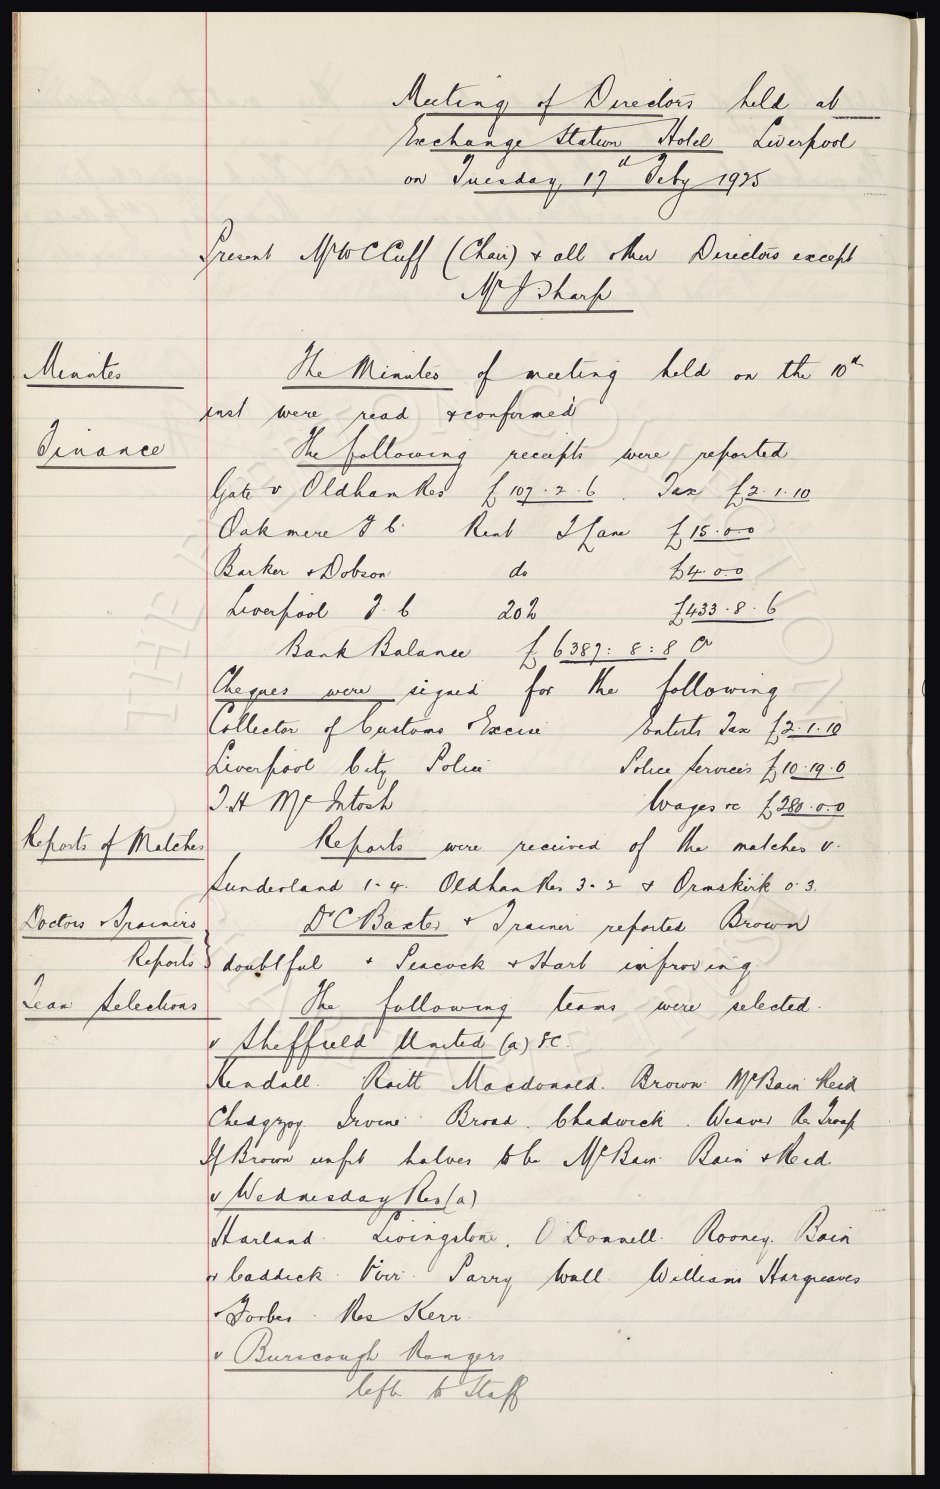 Meeting of Directors held at
Exchange Station Hotel Liverpool
on Tuesday, 17th Feby 1925
Present Mr W C Cuff (Chair) & all other Directors except
Mr J Sharp
Minutes The Minutes of meeting held on the 10th
inst were read & confirmed
Finance The following receipts were reported
Gate v Oldham Res £107.2.6. Tax £2.1.10
Oakmere F C. Rent £15.0.0
Barker & Dobson do £4.0.0
Liverpool F.C 20% £433.8.6
Bank Balance £6387:8:8
Cheques were signed for the following
Collector of Customs & Excise Enterts Tax £2.1.10
Liverpool City Police Police Services £10.19.0
T.H McIntosh Wages &c £280.0.0
Reports of Matches Reports were received of the matches v.
Sunderland 1-4. Oldham Res 3-2 & Ormskirk 0.3.
Doctors & Trainers Dr C Baxter & Trainer reported Brown
Reports doubtful & Peacock & Hart improving
Team Selections The following teams were selected.
v Sheffield United (a) EC.
Kendall. Raitt Macdonald. Brown. McBain Reid
Chedgzoy. Irvine. Broad. Chadwick. Weaver Res Troup
If Brown unfit halves to be McBain. Bain & Reid.
v Wednesday Res (a)
Harland. Livingstone. O'Donnell. Rooney. Bain
or Caddick. Virr. Parry Wall. Williams Hargreaves
& Forbes. Res Kerr.
v Burscough Rangers
left to Staff